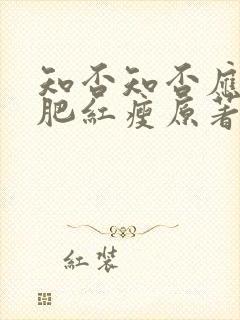 知否知否應
肥紅瘦原著
紅裝